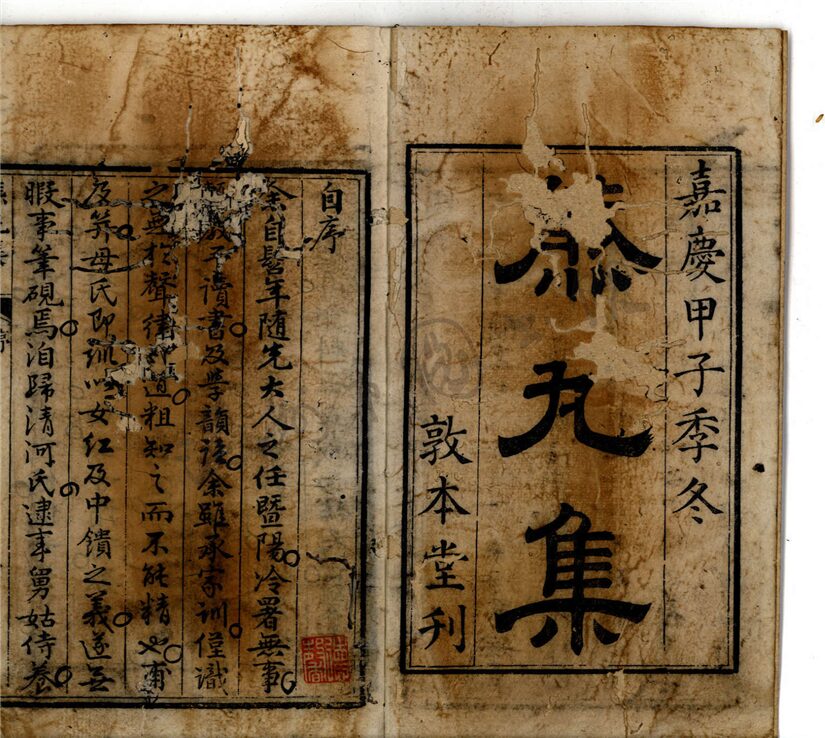 嘉慶甲子季冬
丸集
敦本堂刊
自序
余自髫年隨先大人之任暨陽冷署無事
子讀書及學韻語余雖承家訓僅識
之無於聲律道粗知之而不能精也甫
及笄母氏即訓以女紅及中饋之義遂無
暇事筆硯焉洎歸清河氏逮事舅姑侍養
序